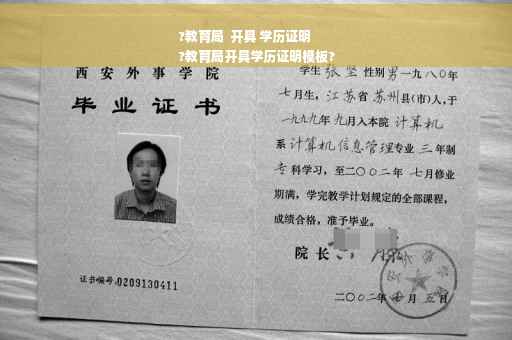 ?教育局 开具 学历证明
?教育局开具学历证明模板?
西安外事学院
毕业证书
证书编号:0209130411
学生 张坚 性别男 一九八〇年
七月生，江苏省苏州县(市)人，于
一九九九年九月入本院 计算机
系计算机信息管理专业 三 年制
专科学习，至二〇〇二年 七月修业
期满，学完教学计划规定的全部课程，
成绩合格，准予毕业。
院长
二〇〇二年 月五日